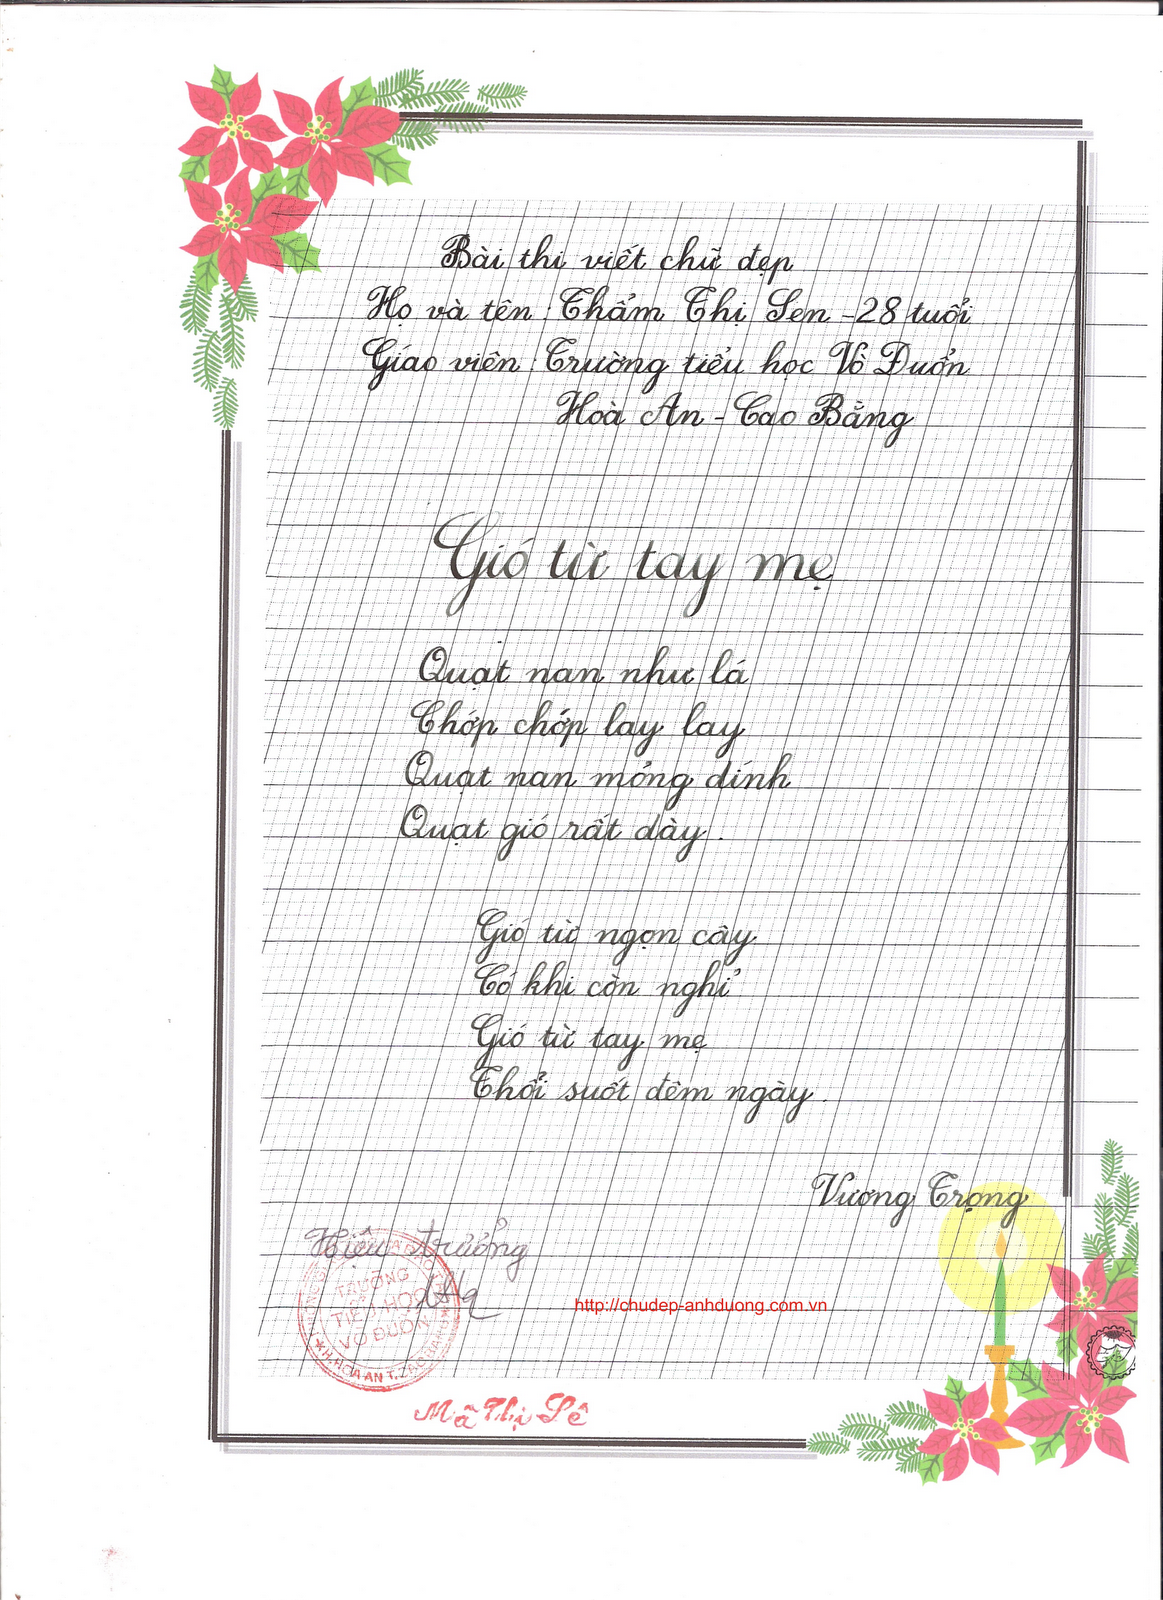 Bài thi viết chữ đẹp
Họ và tên : Thẩm Thị Sen - 28 tuổi
Giáo viên : Trường tiểu học Vò Đuổn
Hoà An - Cao Bằng
Gió từ tay mẹ
Quạt nan như lá
Chớp chớp lay lay
Quạt nan mỏng dính
Quạt gió rất dày.
Gió từ ngọn cây
Có khi còn nghỉ
Gió từ tay mẹ
Thổi suốt đêm ngày.
Vương Trọng
Hiệu trưởng
TRƯỜNG
TIỂU HỌC
VÒ ĐUỔN
H. HOÀ AN T. CAO BẰNG
http://chudep-anhduong.com.vn
Mã Thị Lê